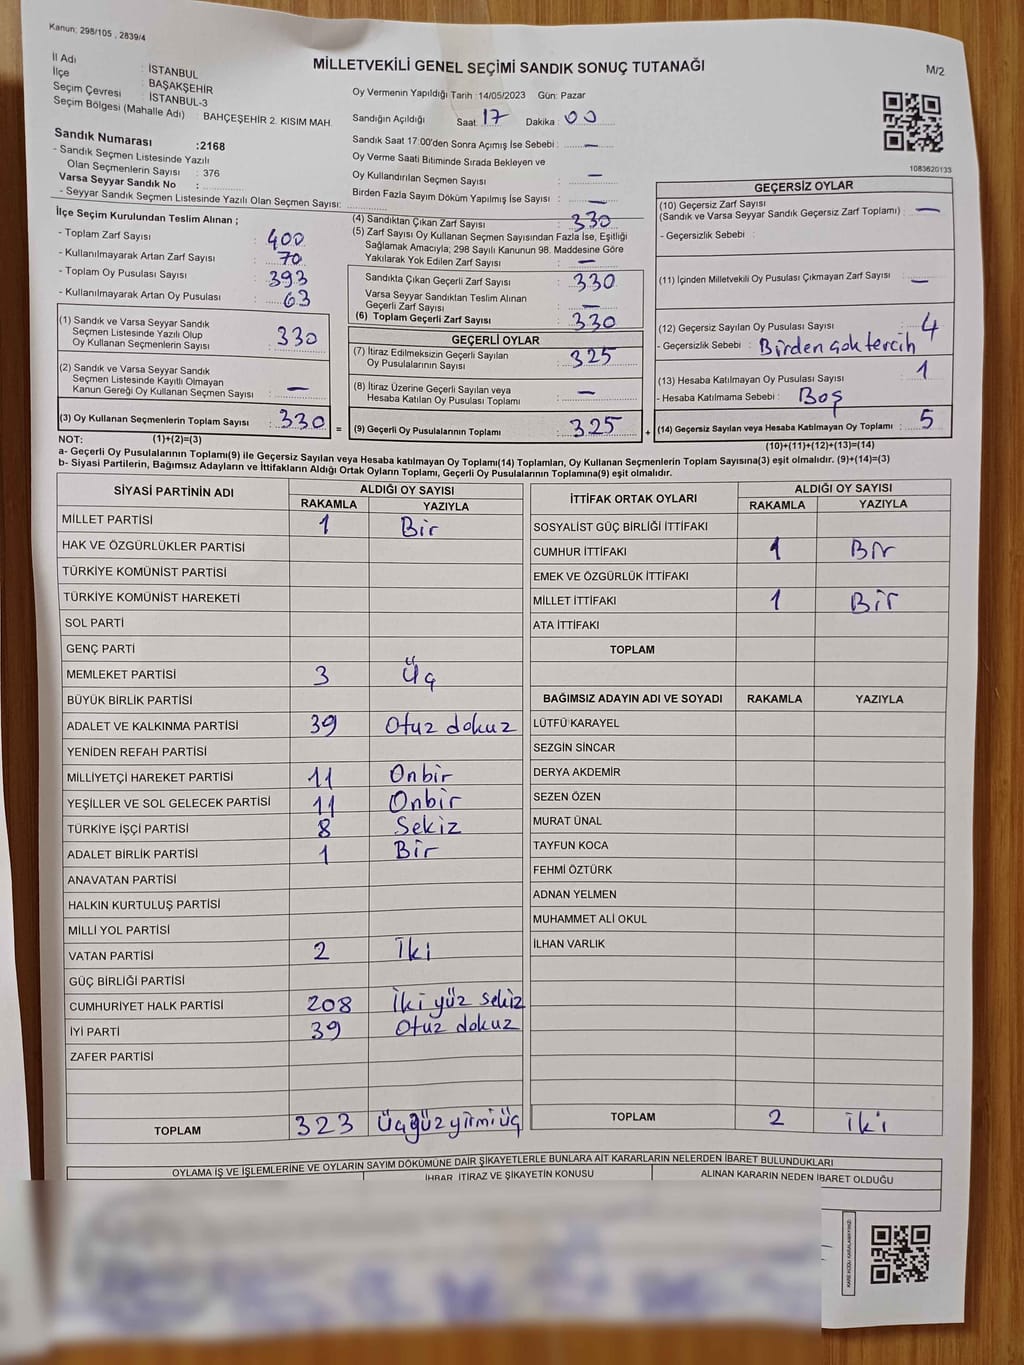 Kanun: 298/105 , 2839/4
MİLLETVEKİLİ GENEL SEÇİMİ SANDIK SONUÇ TUTANAĞI
M/2
İl Adı : İSTANBUL
İlçe : BAŞAKŞEHİR
Seçim Çevresi : İSTANBUL-3
Seçim Bölgesi (Mahalle Adı) : BAHÇEŞEHİR 2. KISIM MAH.
Sandık Numarası :2168
- Sandık Seçmen Listesinde Yazılı
Olan Seçmenlerin Sayısı : 376
Varsa Seyyar Sandık No :
- Seyyar Sandık Seçmen Listesinde Yazılı Olan Seçmen Sayısı:
Oy Vermenin Yapıldığı Tarih :14/05/2023 Gün: Pazar
Sandığın Açıldığı Saat: 17 Dakika : 00
Sandık Saat 17:00'den Sonra Açımış İse Sebebi : —
Oy Verme Saati Bitiminde Sırada Bekleyen ve
Oy Kullandırılan Seçmen Sayısı : —
Birden Fazla Sayım Döküm Yapılmış İse Sayısı : —
1083620133
İlçe Seçim Kurulundan Teslim Alınan ;
- Toplam Zarf Sayısı : 400
- Kullanılmayarak Artan Zarf Sayısı : 70
- Toplam Oy Pusulası Sayısı : 393
- Kullanılmayarak Artan Oy Pusulası : 63
(1) Sandık ve Varsa Seyyar Sandık
Seçmen Listesinde Yazılı Olup
Oy Kullanan Seçmenlerin Sayısı : 330
(2) Sandık ve Varsa Seyyar Sandık
Seçmen Listesinde Kayıtlı Olmayan
Kanun Gereği Oy Kullanan Seçmen Sayısı : —
(3) Oy Kullanan Seçmenlerin Toplam Sayısı : 330 =
(4) Sandıktan Çıkan Zarf Sayısı : 330
(5) Zarf Sayısı Oy Kullanan Seçmen Sayısından Fazla İse, Eşitliği
Sağlamak Amacıyla; 298 Sayılı Kanunun 98. Maddesine Göre
Yakılarak Yok Edilen Zarf Sayısı : —
Sandıkta Çıkan Geçerli Zarf Sayısı : 330
Varsa Seyyar Sandıktan Teslim Alınan
Geçerli Zarf Sayısı : —
(6) Toplam Geçerli Zarf Sayısı : 330
GEÇERLİ OYLAR
(7) İtiraz Edilmeksizin Geçerli Sayılan
Oy Pusulalarının Sayısı : 325
(8) İtiraz Üzerine Geçerli Sayılan veya
Hesaba Katılan Oy Pusulası Toplamı : —
(9) Geçerli Oy Pusulalarının Toplamı : 325 +
GEÇERSİZ OYLAR
(10) Geçersiz Zarf Sayısı
(Sandık ve Varsa Seyyar Sandık Geçersiz Zarf Toplamı) : —
- Geçersizlik Sebebi :
(11) İçinden Milletvekili Oy Pusulası Çıkmayan Zarf Sayısı : —
(12) Geçersiz Sayılan Oy Pusulası Sayısı : 4
- Geçersizlik Sebebi : Birden çok tercih
(13) Hesaba Katılmayan Oy Pusulası Sayısı : 1
- Hesaba Katılmama Sebebi : Boş
(14) Geçersiz Sayılan veya Hesaba Katılmayan Oy Toplamı : 5
NOT: (1)+(2)=(3)
(10)+(11)+(12)+(13)=(14)
a- Geçerli Oy Pusulalarının Toplamı(9) ile Geçersiz Sayılan veya Hesaba katılmayan Oy Toplamı(14) Toplamları, Oy Kullanan Seçmenlerin Toplam Sayısına(3) eşit olmalıdır. (9)+(14)=(3)
b- Siyasi Partilerin, Bağımsız Adayların ve İttifakların Aldığı Ortak Oyların Toplamı, Geçerli Oy Pusulalarının Toplamına(9) eşit olmalıdır.
SİYASİ PARTİNİN ADI ALDIĞI OY SAYISI
RAKAMLA YAZIYLA
MİLLET PARTİSİ 1 Bir
HAK VE ÖZGÜRLÜKLER PARTİSİ
TÜRKİYE KOMÜNİST PARTİSİ
TÜRKİYE KOMÜNİST HAREKETİ
SOL PARTİ
GENÇ PARTİ
MEMLEKET PARTİSİ 3 Üç
BÜYÜK BİRLİK PARTİSİ
ADALET VE KALKINMA PARTİSİ 39 Otuz dokuz
YENİDEN REFAH PARTİSİ
MİLLİYETÇİ HAREKET PARTİSİ 11 Onbir
YEŞİLLER VE SOL GELECEK PARTİSİ 11 Onbir
TÜRKİYE İŞÇİ PARTİSİ 8 Sekiz
ADALET BİRLİK PARTİSİ 1 Bir
ANAVATAN PARTİSİ
HALKIN KURTULUŞ PARTİSİ
MİLLİ YOL PARTİSİ
VATAN PARTİSİ 2 İki
GÜÇ BİRLİĞİ PARTİSİ
CUMHURİYET HALK PARTİSİ 208 İki yüz sekiz
İYİ PARTİ 39 Otuz dokuz
ZAFER PARTİSİ
TOPLAM 323 Üçyüzyirmiüç
İTTİFAK ORTAK OYLARI ALDIĞI OY SAYISI
RAKAMLA YAZIYLA
SOSYALİST GÜÇ BİRLİĞİ İTTİFAKI
CUMHUR İTTİFAKI 1 Bir
EMEK VE ÖZGÜRLÜK İTTİFAKI
MİLLET İTTİFAKI 1 Bir
ATA İTTİFAKI
TOPLAM
BAĞIMSIZ ADAYIN ADI VE SOYADI RAKAMLA YAZIYLA
LÜTFÜ KARAYEL
SEZGİN SİNCAR
DERYA AKDEMİR
SEZEN ÖZEN
MURAT ÜNAL
TAYFUN KOCA
FEHMİ ÖZTÜRK
ADNAN YELMEN
MUHAMMET ALİ OKUL
İLHAN VARLIK
TOPLAM 2 İki
OYLAMA İŞ VE İŞLEMLERİNE VE OYLARIN SAYIM DÖKÜMÜNE DAİR ŞİKAYETLERLE BUNLARA AİT KARARLARIN NELERDEN İBARET BULUNDUKLARI
İHBAR, İTİRAZ VE ŞİKAYETİN KONUSU
ALINAN KARARIN NEDEN İBARET OLDUĞU
KARE KODU KARALAMAYINIZ!